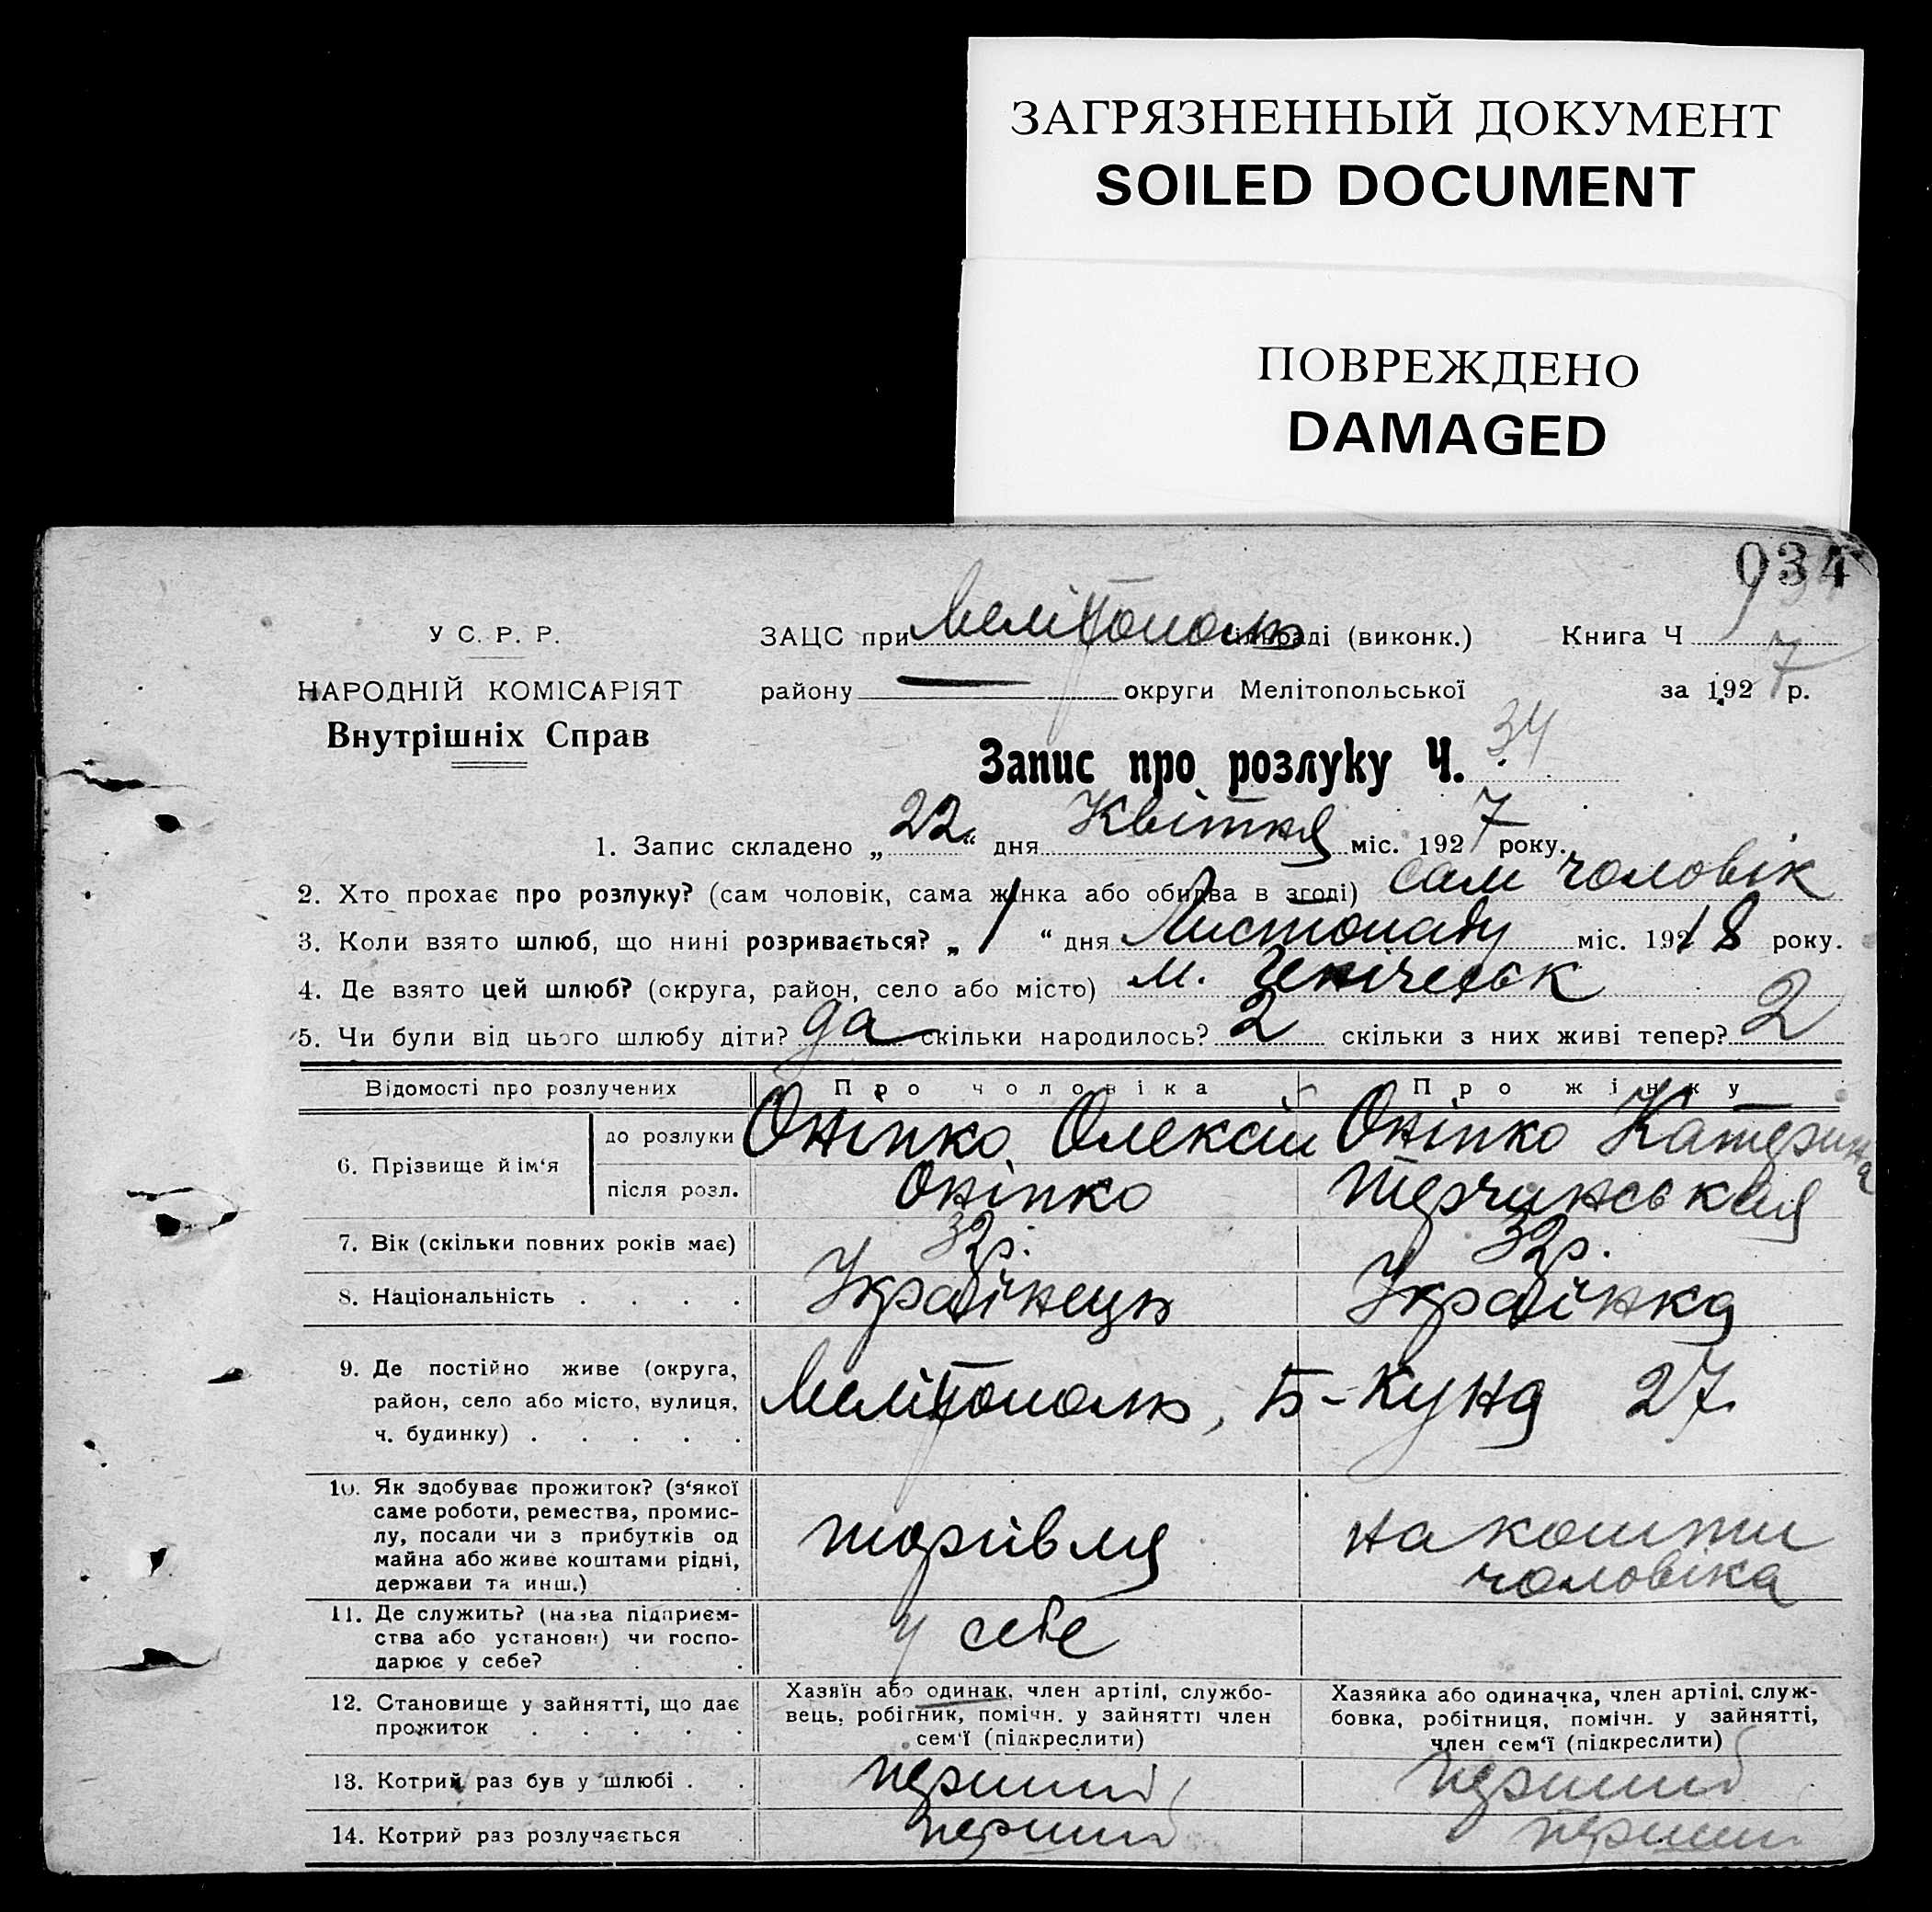 ЗАГРЯЗНЕННЫЙ ДОКУМЕНТ
SOILED DOCUMENT
ПОВРЕЖДЕНО
DAMAGED
034
У С. Р. Р.
НАРОДНІЙ КОМІСАРІЯТ
Внутрішніх Справ
ЗАЦС при Мелітополь сільраді (виконк.) Книга Ч
району — округи Мелітопольської за 1927 р.
Запис про розлуку Ч. 34
1. Запис складено „22“ дня Квітня міс. 1927 року.
2. Хто прохає про розлуку? (сам чоловік, сама жінка або обидва в згоді) сам чоловік
3. Коли взято шлюб, що нині розривається? „1“ дня Листопаду міс. 1918 року.
4. Де взято цей шлюб? (округа, район, село або місто) м. Генічеськ
5. Чи були від цього шлюбу діти? да скільки народилось? 2 скільки з них живі тепер? 2
Відомості про розлучених Про чоловіка Про жінку
6. Прізвище й ім‘я
до розлуки Оніпко Олексій Оніпко Катерина
після розл. Оніпко
7. Вік (скільки повних років має) 32 р. 32 р.
8. Національність . . . . Українець Українка
9. Де постійно живе (округа,
район, село або місто, вулиця,
ч. будинку) . . . . .
Мелітополь, Б-Куна 27
10. Як здобуває прожиток? (з‘якої
саме роботи, ремества, промис-
лу, посади чи з прибутків од
майна або живе коштами рідні,
держави та инш.) .
торгівля на кошти
чоловіка
11. Де служить? (назва підприєм-
ства або установи) чи госпо-
дарює у себе? . .
у себе
12. Становище у зайнятті, що дає
прожиток . . . . .
Хазяїн або одинак, член артілі, службо-
вець, робітник, помічн. у зайнятті член
сем‘ї (підкреслити)
Хазяйка або одиначка, член артілі, служ-
бовка, робітниця, помічн. у зайнятті,
член сем‘ї (підкреслити)
13. Котрий раз був у шлюбі . . перший перший
14. Котрий раз розлучається перший перший